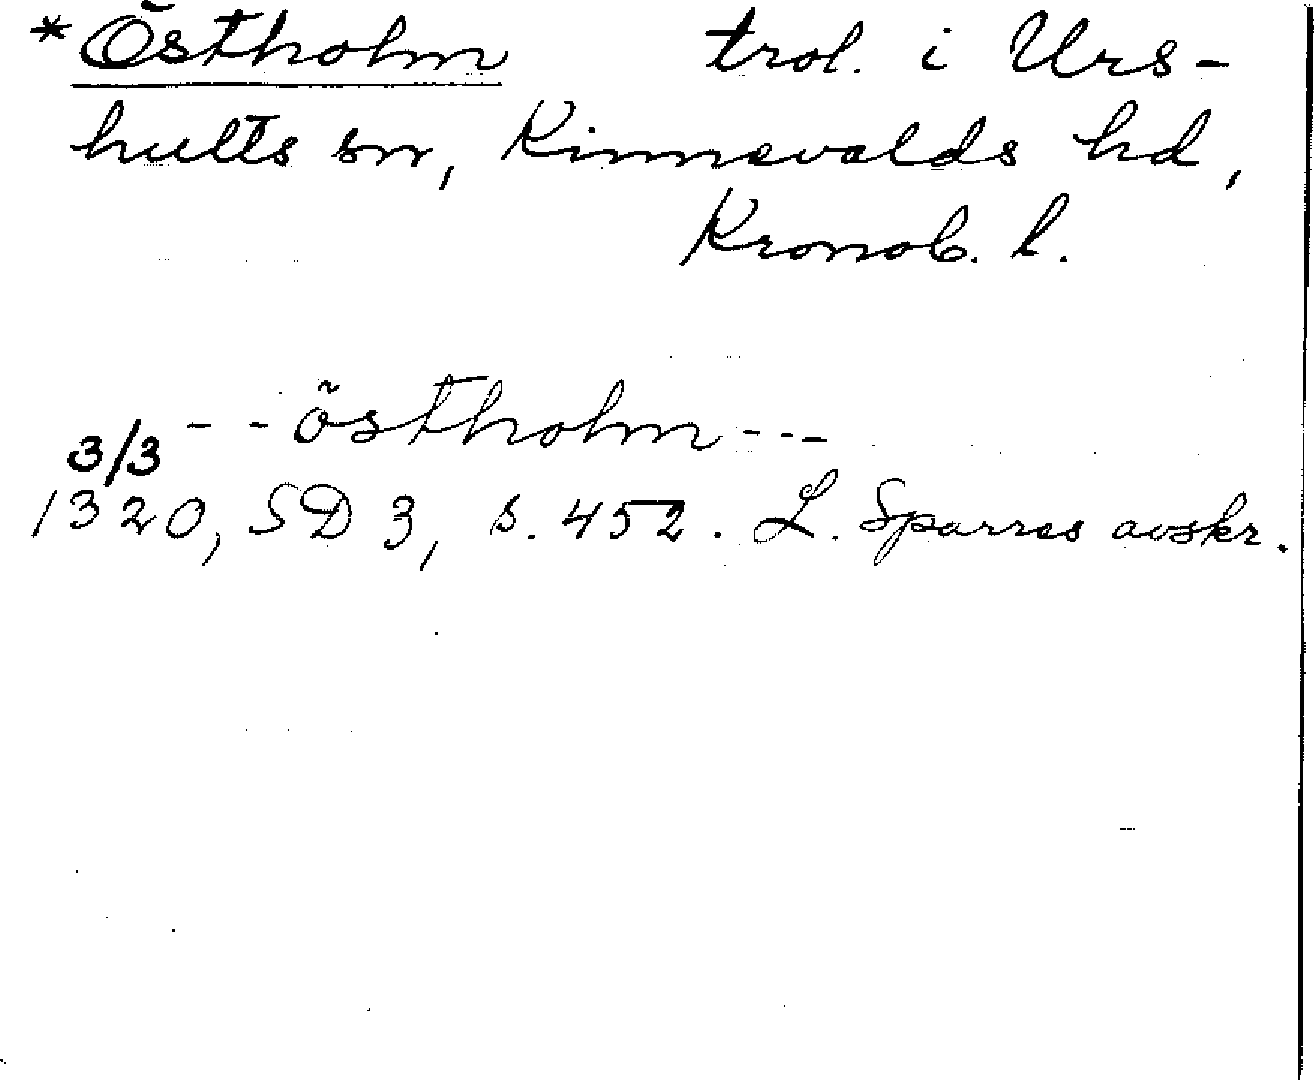 *Östholm trol. i Urs-
hults sn, Kinnevalds hd,
Kronob. l.
- - östholm - - -
3/3
1320, SD 3, s. 452. L. Sparres avskr.